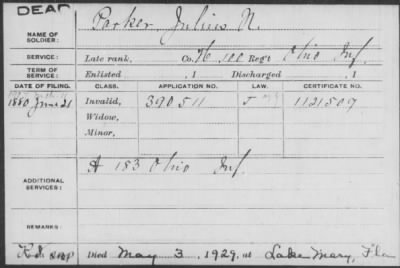 DEAD
NAME OF SOLDIER: Parker, Julius N.
SERVICE: Late rank, Co. H, 100 Regt Ohio Inf.
TERM OF SERVICE: Enlisted , 1 Discharged , 1
DATE OF FILING. CLASS. APPLICATION NO. LAW. CERTIFICATE NO.
1880 June 21 Invalid, 390511 J 1121507
Widow,
Minor,
ADDITIONAL SERVICES: A 183 Ohio Inf.
REMARKS:
Died May 3, 1929, at Lake Mary, Fla